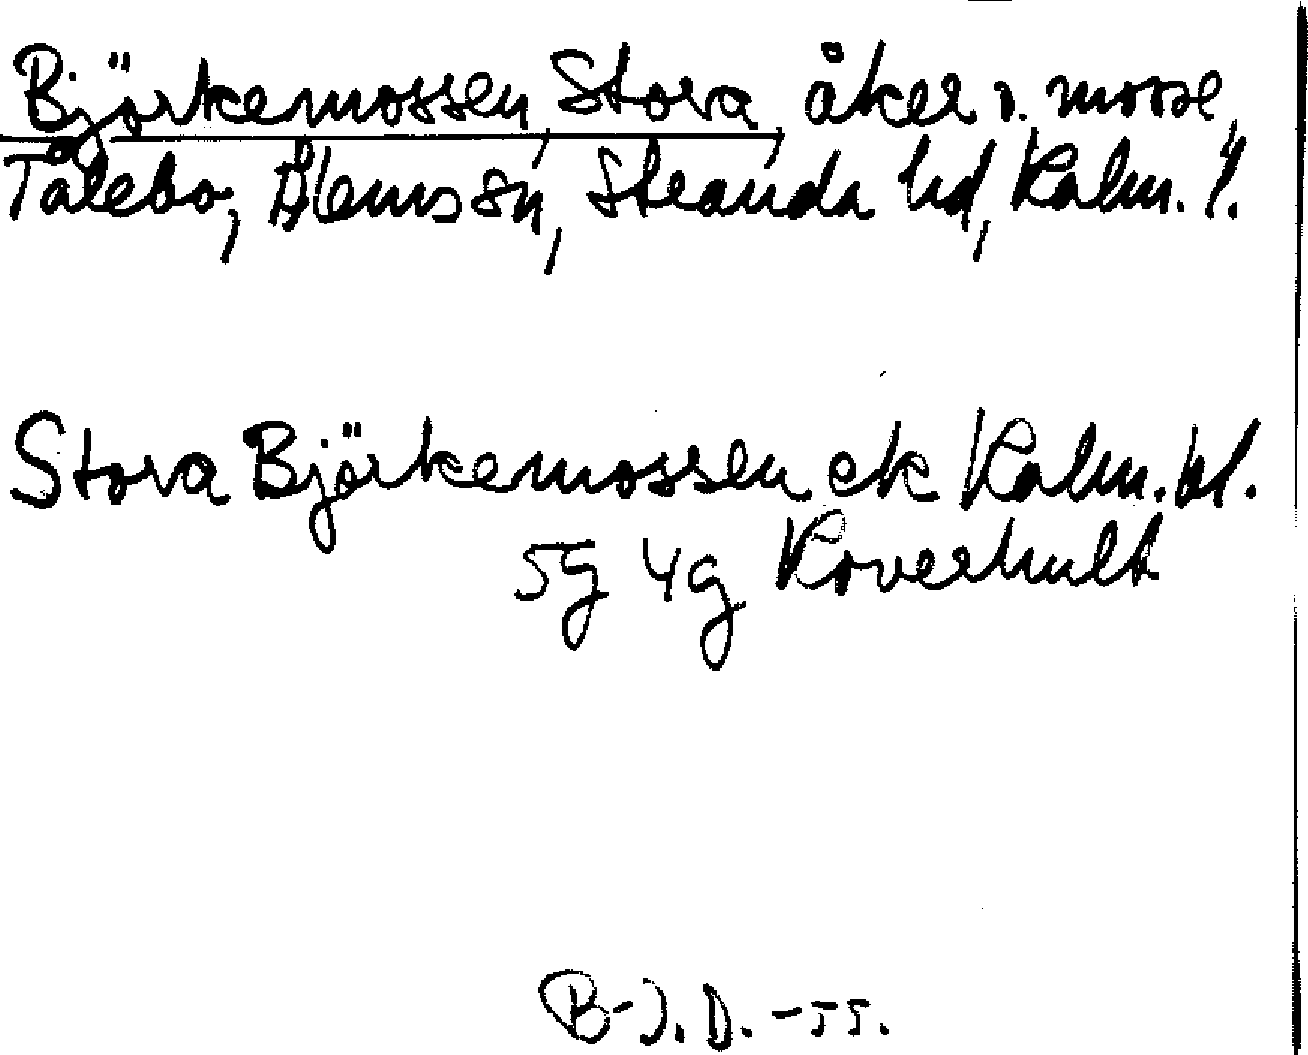 Björkemossen, Stora, åker o. mosse,
Tålebo, Hlemssn, Stranda hd, Kalm. l.
Stora Björkemossen ek Kalm. bl.
5g 4g Koverhult
B-J. D. -55.